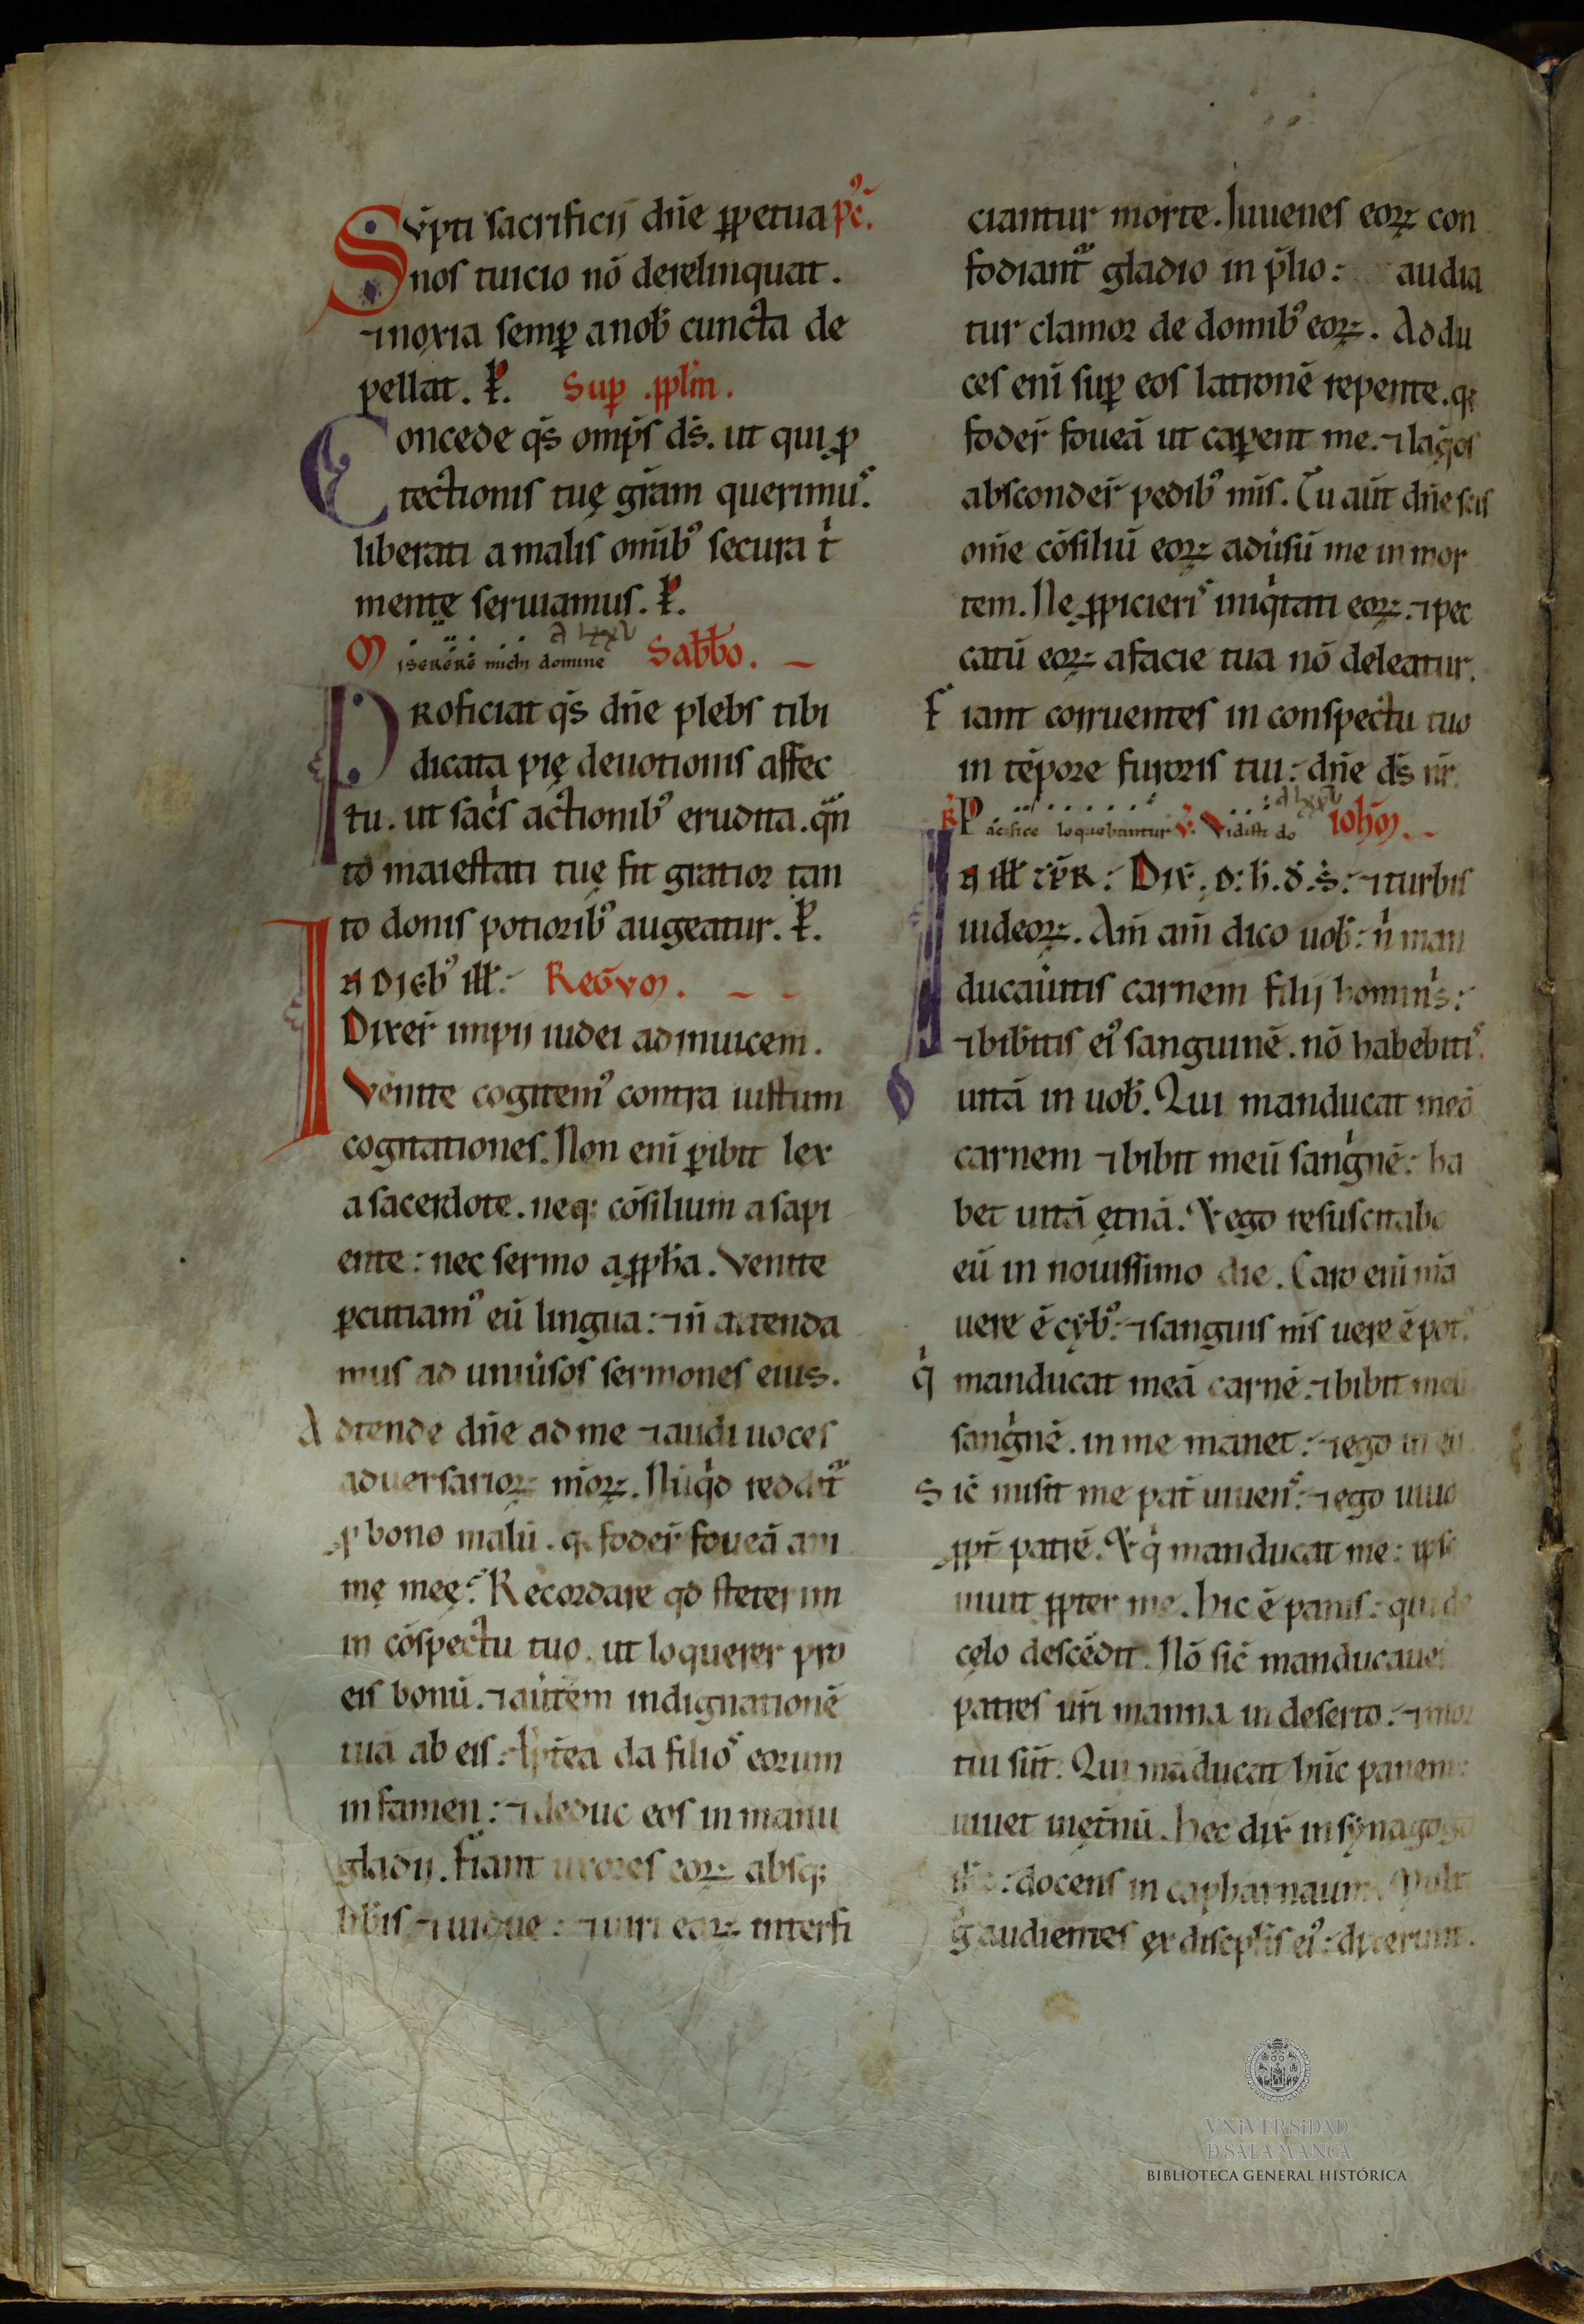 Sūpti sacrificij dn̄e ꝑpetua pc̄.
nos tuicio nō derelinquat.
⁊ noxia semꝑ a nob̄ cuncta de
pellat. ꝑ. Suꝑ .ppl̄m.
Concede qs̄ omp̄s ds̄. ut qui ꝓ
tectionis tuę gr̄am querimus.
liberati a malis om̄ib᷒ secura t̄
mente seruiamus. ꝑ.
Miserere michi domine a lxxv Sabb̄o.
Proficiat qs̄ dn̄e plebs tibi
dicata pię deuotionis affec
tu. ut sac̄s actionib᷒ erudita. qn̄
to maiestati tuę fit gratior tan
to donis potiorib᷒ augeatur. ꝑ.
In dieb᷒ ill̄: Regv̄m.
Dixer̄ impij iudei ad inuicem.
Venite cogitem᷒ contra iustum
cogitationes. Non eni ꝑibit lex
a sacerdote. neq; cōsilium a sapi
ente: nec sermo a ꝓph̄a. Venite
ꝑcutiam᷒ eū lingua: ⁊ n̄ attenda
mus ad uniūsos sermones eius.
Adtende dn̄e ad me ⁊ audi uoces
aduersarioꝝ m̄oꝝ. Nūqd reddit̄
ꝓ bono malū. q; foder̄ foueā ani
mę meę. Recordare qd steterim
in cōspectu tuo. ut loquerer pro
eis bonū. ⁊ aūtem indignationē
tuā ab eis: Ꝓptea da filios eorum
in famen: ⁊ deduc eos in manu
gladij. Fiant uxores eoꝝ absq;
lib̄is ⁊ uidue: ⁊ uiri eaꝝ interfi
ciantur morte. Iuuenes eoꝝ con
fodiant̄ gladio in p̄lio: audia
tur clamor de domib᷒ eoꝝ. Addu
ces eni suꝑ eos latronē repente. q;
foder̄ foueā ut caꝑent me. ⁊ laqos
absconder̄ pedib᷒ mīs. Tu aūt dn̄e scis
om̄e cōsiliū eoꝝ adūsū me in mor
tem. Ne ꝓpicieris iniqtati eoꝝ. ⁊ pec
catū eoꝝ a facie tua nō deleatur.
Fiant corruentes in conspectu tuo
in tēpore furoris tui: dn̄e ds̄ nr̄.
R̄ Pacifice loquebantur v̄. Vidisti do a lxxv ioh̄m.
In ill̄ tp̄r: Dix̄. d: h. d. s̄: ⁊ turbis
iudeoꝝ. Am̄ am̄ dico uob̄: n̄ man
ducaūitis carnem filij hominis:
⁊ bibitis ei᷒ sanguinē. nō habebitis
uitā in uob̄. Qui manducat meā
carnem ⁊ bibit meū sangnē: ha
bet uitā ętnā. ⁊ ego resuscitabo
eū in nouissimo die. Caro eni m̄a
uere ē cyb᷒: ⁊ sanguis m̄s uere ē pot᷒.
q̄ manducat meā carnē: ⁊ bibit meū
sangnē. in me manet: ⁊ ego in eū.
Sic̄ misit me pat̄ uiuens: ⁊ ego uiuo
ꝓpt̄ patrē. ⁊ q̄ manducat me: ipse
uiuit ꝓpter me. Hic ē panis: qui de
cęlo descēdit. Nō sic̄ manducauer
patres ur̄i manna in deserto: ⁊ mor
tui sūt. Qui māducat hūc panem:
uiuet in ęt̄nū. Hec dix̄ in synagoga
: docens in capharnaum. Mult
g̊ audientes ex discipl̄is ei᷒: dixerunt.
VNiVERSiDAD
D SALAMANCA
BIBLIOTECA GENERAL HISTÓRICA